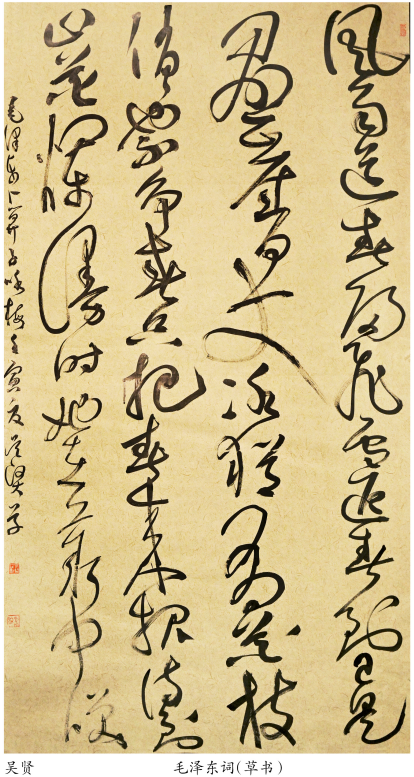 风雨送春归飞雪迎春到已是
悬崖百丈冰犹有花枝
俏也不争春只把春来报待到
山花烂漫时她在丛中笑
毛泽东卜算子咏梅壬寅夏吴贤草
吴贤
毛泽东词(草书)